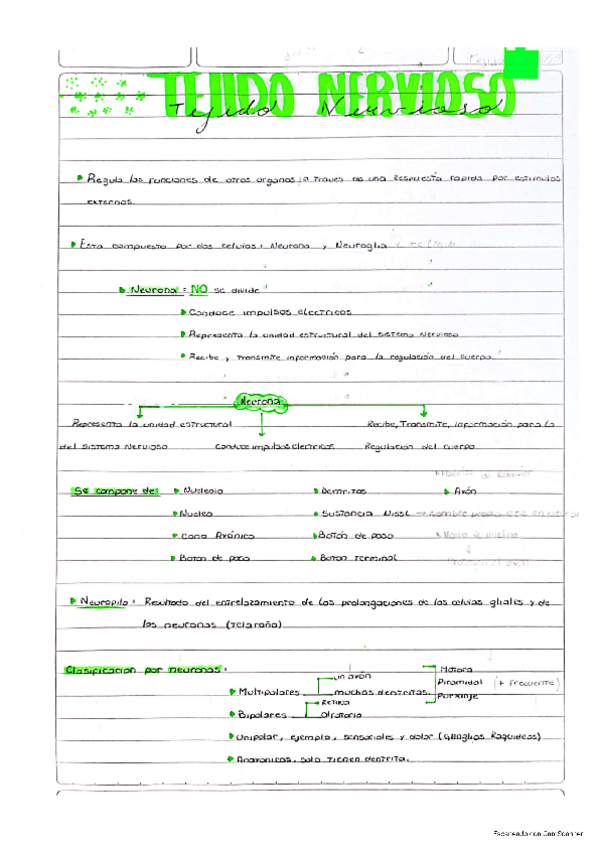 TEJIDO NERVIOSO
Tejido Nervioso
Regula las funciones de otros organos a traves de una Respuesta rapida por estimulos
externos.
Esta compuesto por dos celulas: Neurona y Neuroglia
Neurona: NO se divide
Conduce impulsos electricos
Representa la unidad estructural del sistema Nervioso
Recibe y Transmite información para la regulación del cuerpo.
Neurona
Representa la unidad estructural Recibe, Transmite, información para la
del sistema Nervioso Conduce impulsos Electricos Regulación del cuerpo
Se compone de: Nucleolo Dentritas Axón
Nucleo Sustancia Nissl → Nombre
Cono Axónico Botón de paso
Boton de paso Boton Terminal
Neuropilo: Resultado del entrelazamiento de las prolongaciones de las celulas gliales y de
las neuronas (Telaraña)
Clasificacion por neuronas:
un axón Motora
Multipolares muchas dentritas. Piramidal (+ frecuente)
Purkinje
Retina
Bipolares Olfatoria
Unipolar, ejemplo, sensoriales y dolor (Ganglios Raquideos)
Anaxonicas, solo tienen dentrita.
Escaneado con CamScanner